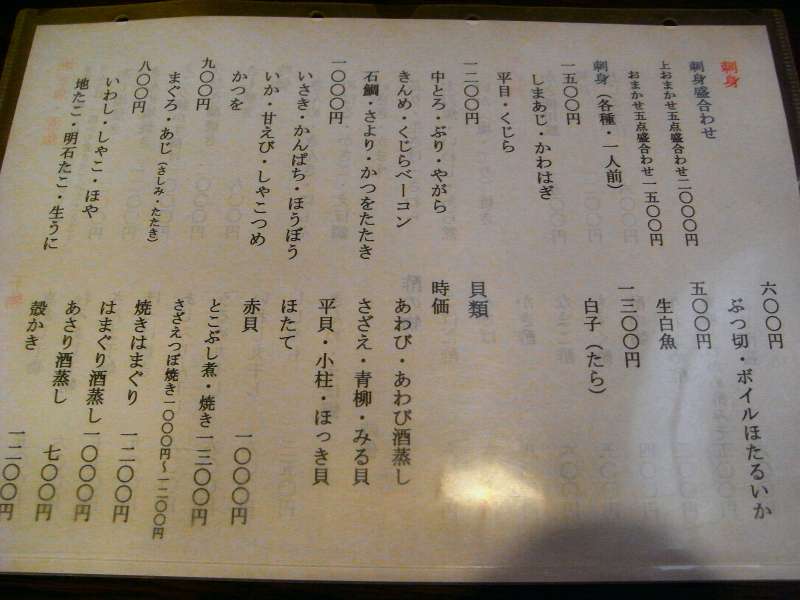 刺身
刺身盛合わせ
上おまかせ五点盛合わせ二〇〇〇円
おまかせ五点盛合わせ一五〇〇円
刺身（各種・一人前）
一五〇〇円
しまあじ・かわはぎ
平目・くじら
一二〇〇円
中とろ・ぶり・やがら
きんめ・くじらベーコン
石鯛・さより・かつをたたき
一〇〇〇円
いさき・かんぱち・ほうぼう
いか・甘えび・しゃこつめ
かつを
九〇〇円
まぐろ・あじ（さしみ・たたき）
八〇〇円
いわし・しゃこ・ほや
地たこ・明石たこ・生うに
六〇〇円
ぶつ切・ボイルほたるいか
五〇〇円
生白魚
一三〇〇円
白子（たら）
貝類
時価
あわび・あわび酒蒸し
さざえ・青柳・みる貝
平貝・小柱・ほっき貝
ほたて
赤貝 一〇〇〇円
とこぶし煮・焼き一三〇〇円
さざえつぼ焼き一〇〇〇円〜一二〇〇円
焼きはまぐり 一二〇〇円
はまぐり酒蒸し一〇〇〇円
あさり酒蒸し 七〇〇円
殻かき 一二〇〇円